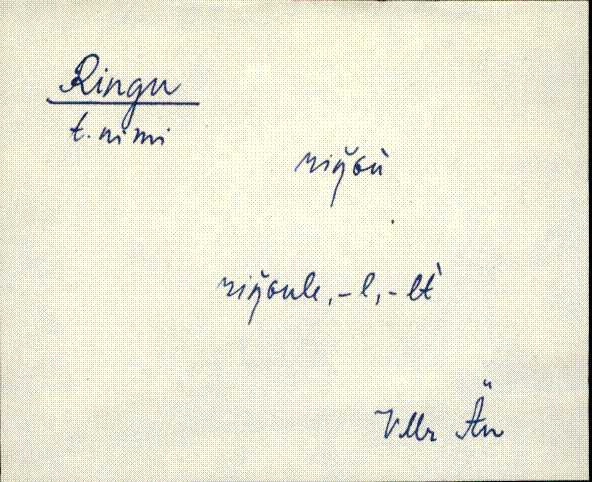 Ringu
t. nimi
riŋ̆Gù
riŋ̆Gule, -l, -lt̀
VMr Än